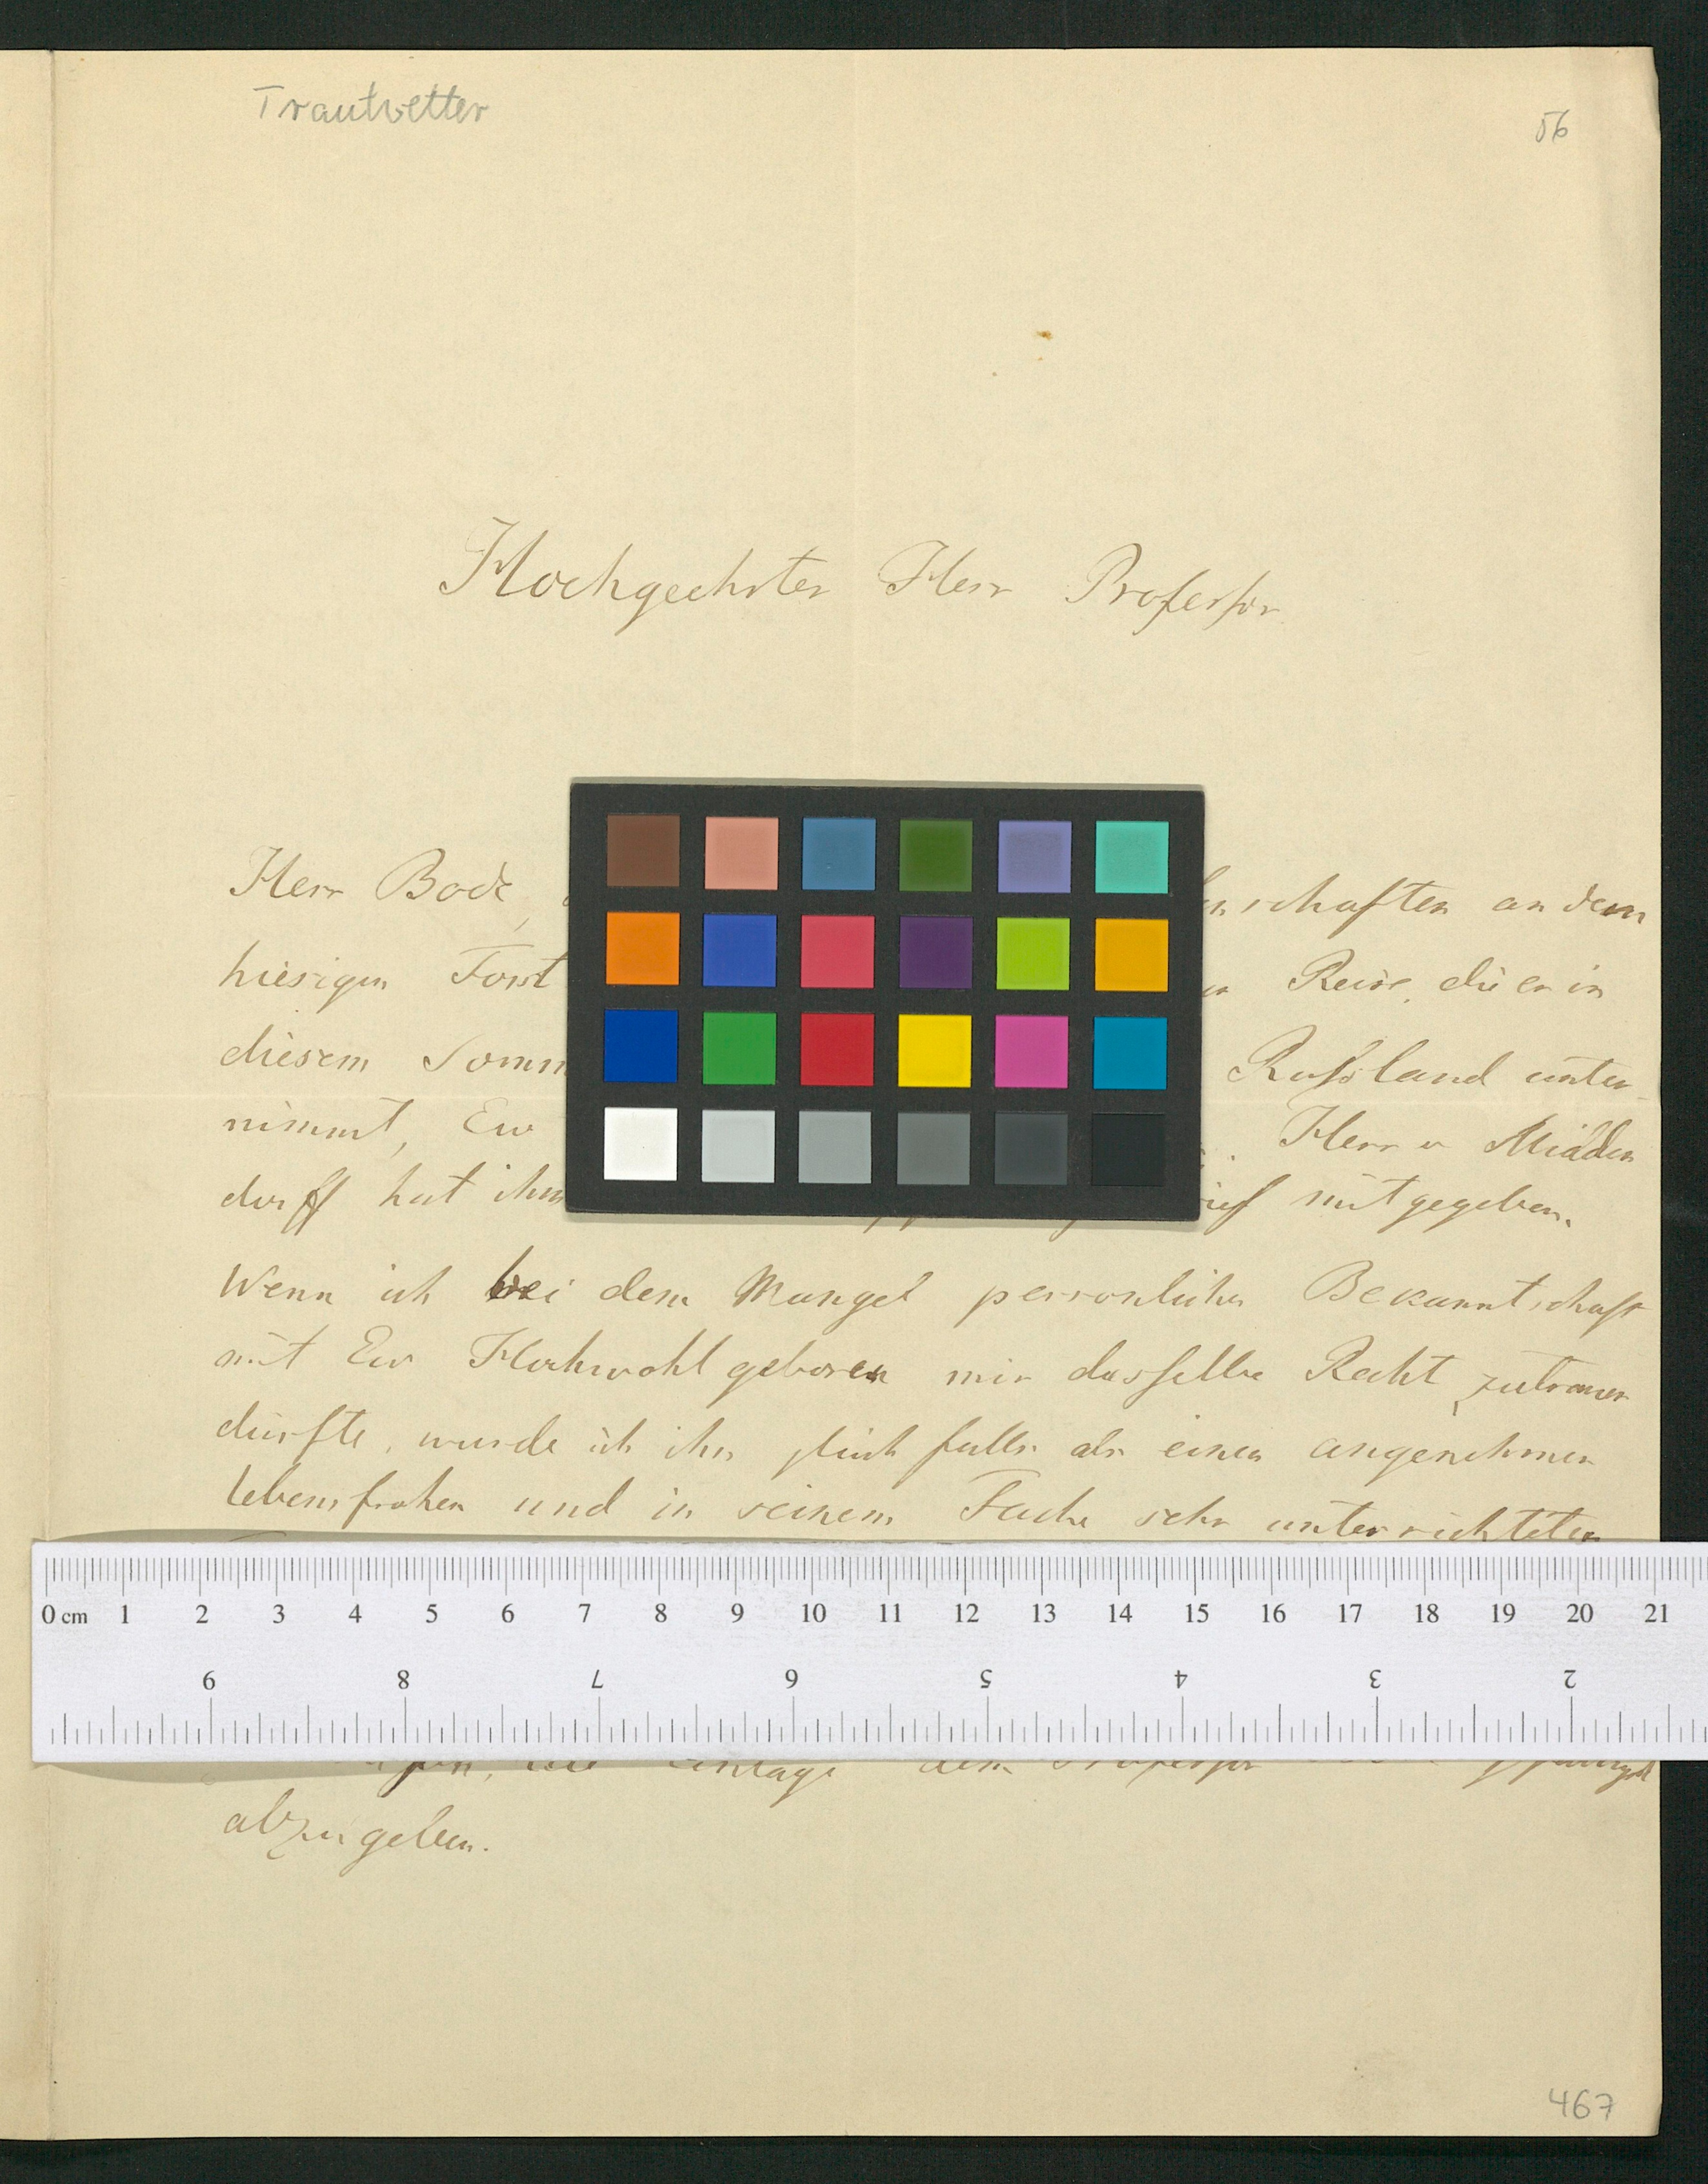 Trautvetter
56
Hochgeehrter Herr Professor
Herr Bode, schaften an dem
hiesigen Forst Reise, die er in
diesem Somm Rußland unter
nimmt, Ew Herr v Midden
dorff hat ihm mitgegeben.
Wenn ich bei dem Mangel persönlicher Bekanntschaft
mit Ew Hochwohlgeboren mir dasselbe Recht zutrauen
dürfte, wurde ich ihn gleichfalls als einen angenehmen
lebensfrohen und in seinem Fache sehr unterrichteten
0 cm 1 2 3 4 5 6 7 8 9 10 11 12 13 14 15 16 17 18 19 20 21
9 8 7 6 5 4 3 2
Einlage dem Professor
abzugeben.
467